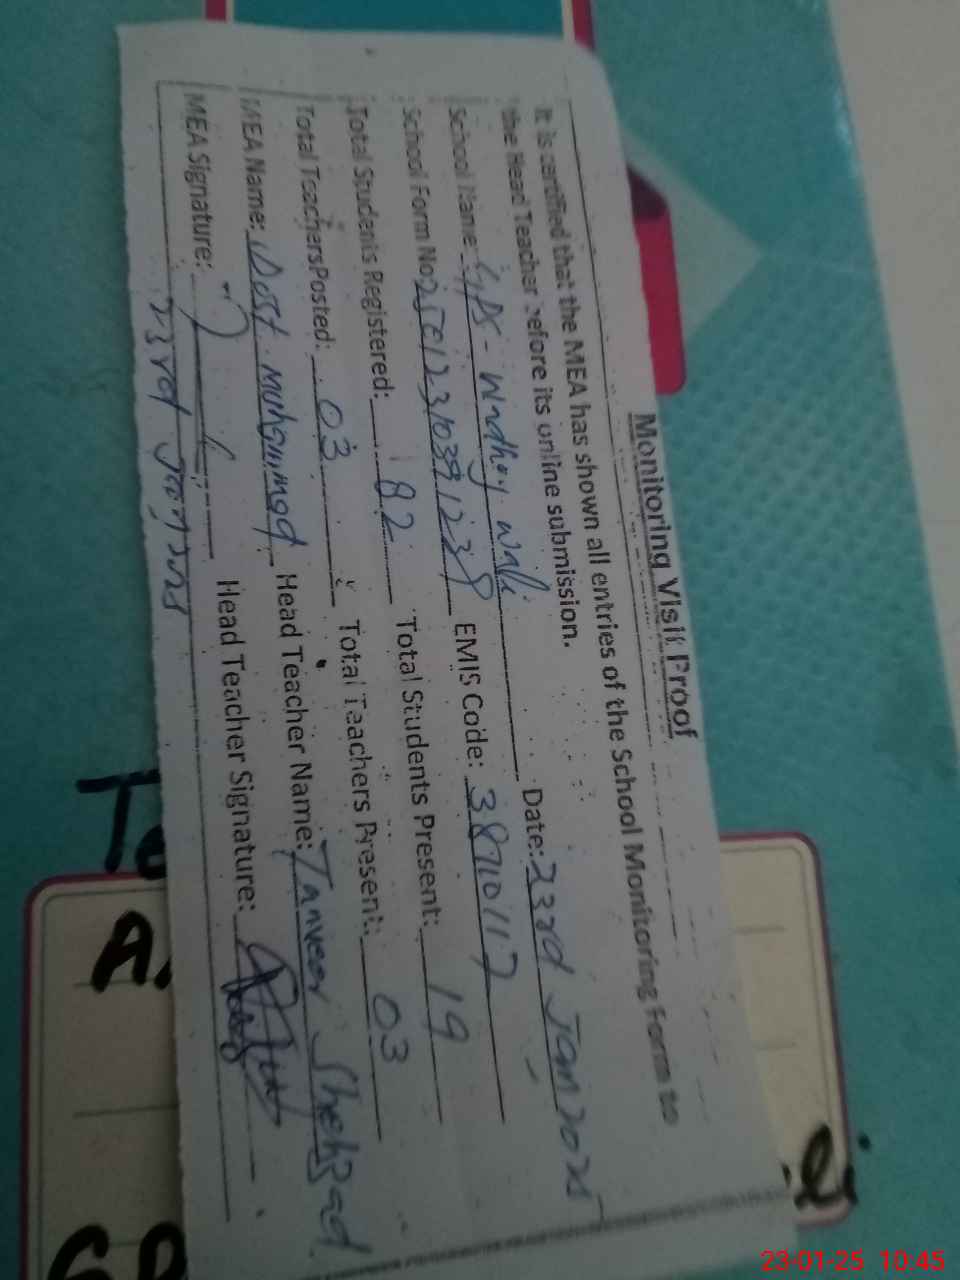 Monitoring Visit Proof
It is certified that the MEA has shown all entries of the School Monitoring Form to
the Head Teacher before its online submission.
School Name: GPS - Wadhoy Wali Date: 23rd Jan 2025
School Form No: EMIS Code: 38710117
Total Students Registered: 82 Total Students Present: 19
Total Teachers Posted: 03 Total Teachers Present: 03
MEA Name: Dost Muhammad Head Teacher Name: Tanveer Shehzad
MEA Signature: Head Teacher Signature:
23rd Jan 2025
23-01-25 10:45